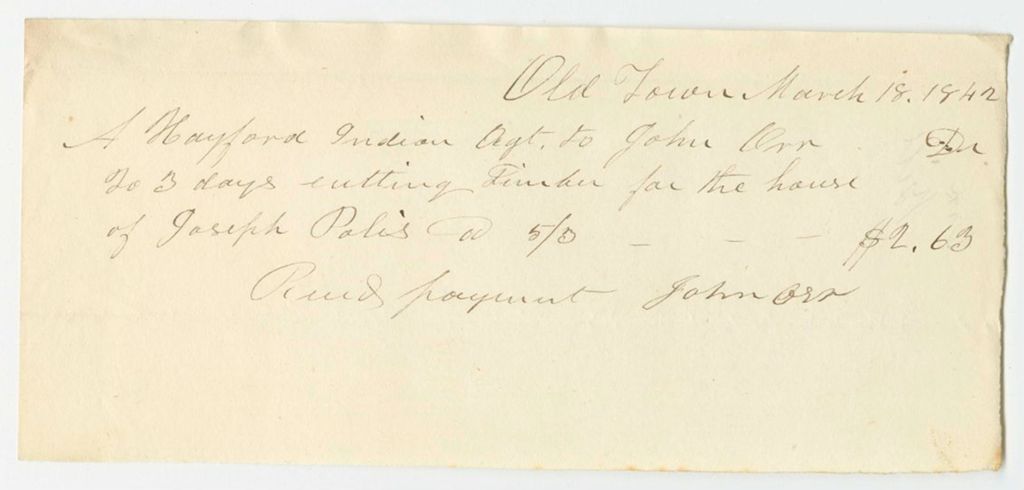 Old Town March 18. 1842
A Hayford Indian Agt. to John Orr Dr
To 3 days cutting Timber for the house
of Joseph Polis @ 5/3 - - - $2.63
Recd payment John Orr